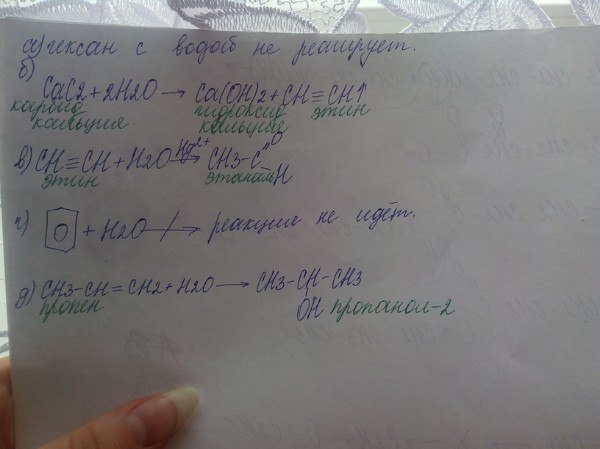 а) гексан с водой не реагирует.
б)
CaC2 + 2H2O → Ca(OH)2 + CH≡CH↑
карбид гидроксид этин
кальция кальция
в) CH≡CH + H2O Hg2+→ CH3-C=O
этин этаналь -H
г) + H2O → реакция не идёт.
д) CH3-CH=CH2 + H2O → CH3-CH-CH3
пропен OH пропанол-2